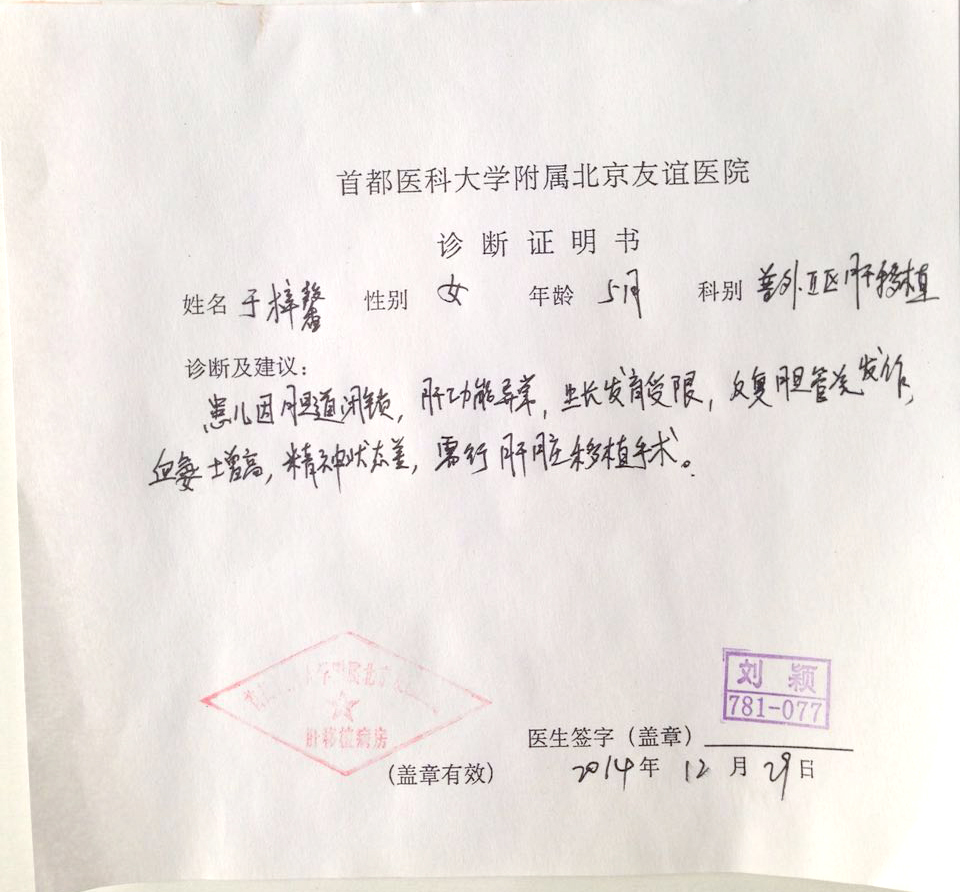 首都医科大学附属北京友谊医院
诊断证明书
姓名 于梓馨 性别 女 年龄 5月 科别 普外五区肝移植
诊断及建议：
患儿因胆道闭锁，肝功能异常，生长发育受限，反复胆管炎发作，
血氨增高，精神状态差，需行肝脏移植手术。
学附属北京
肝移植病房
刘颖
781-077
医生签字（盖章）
（盖章有效） 2014年12月29日